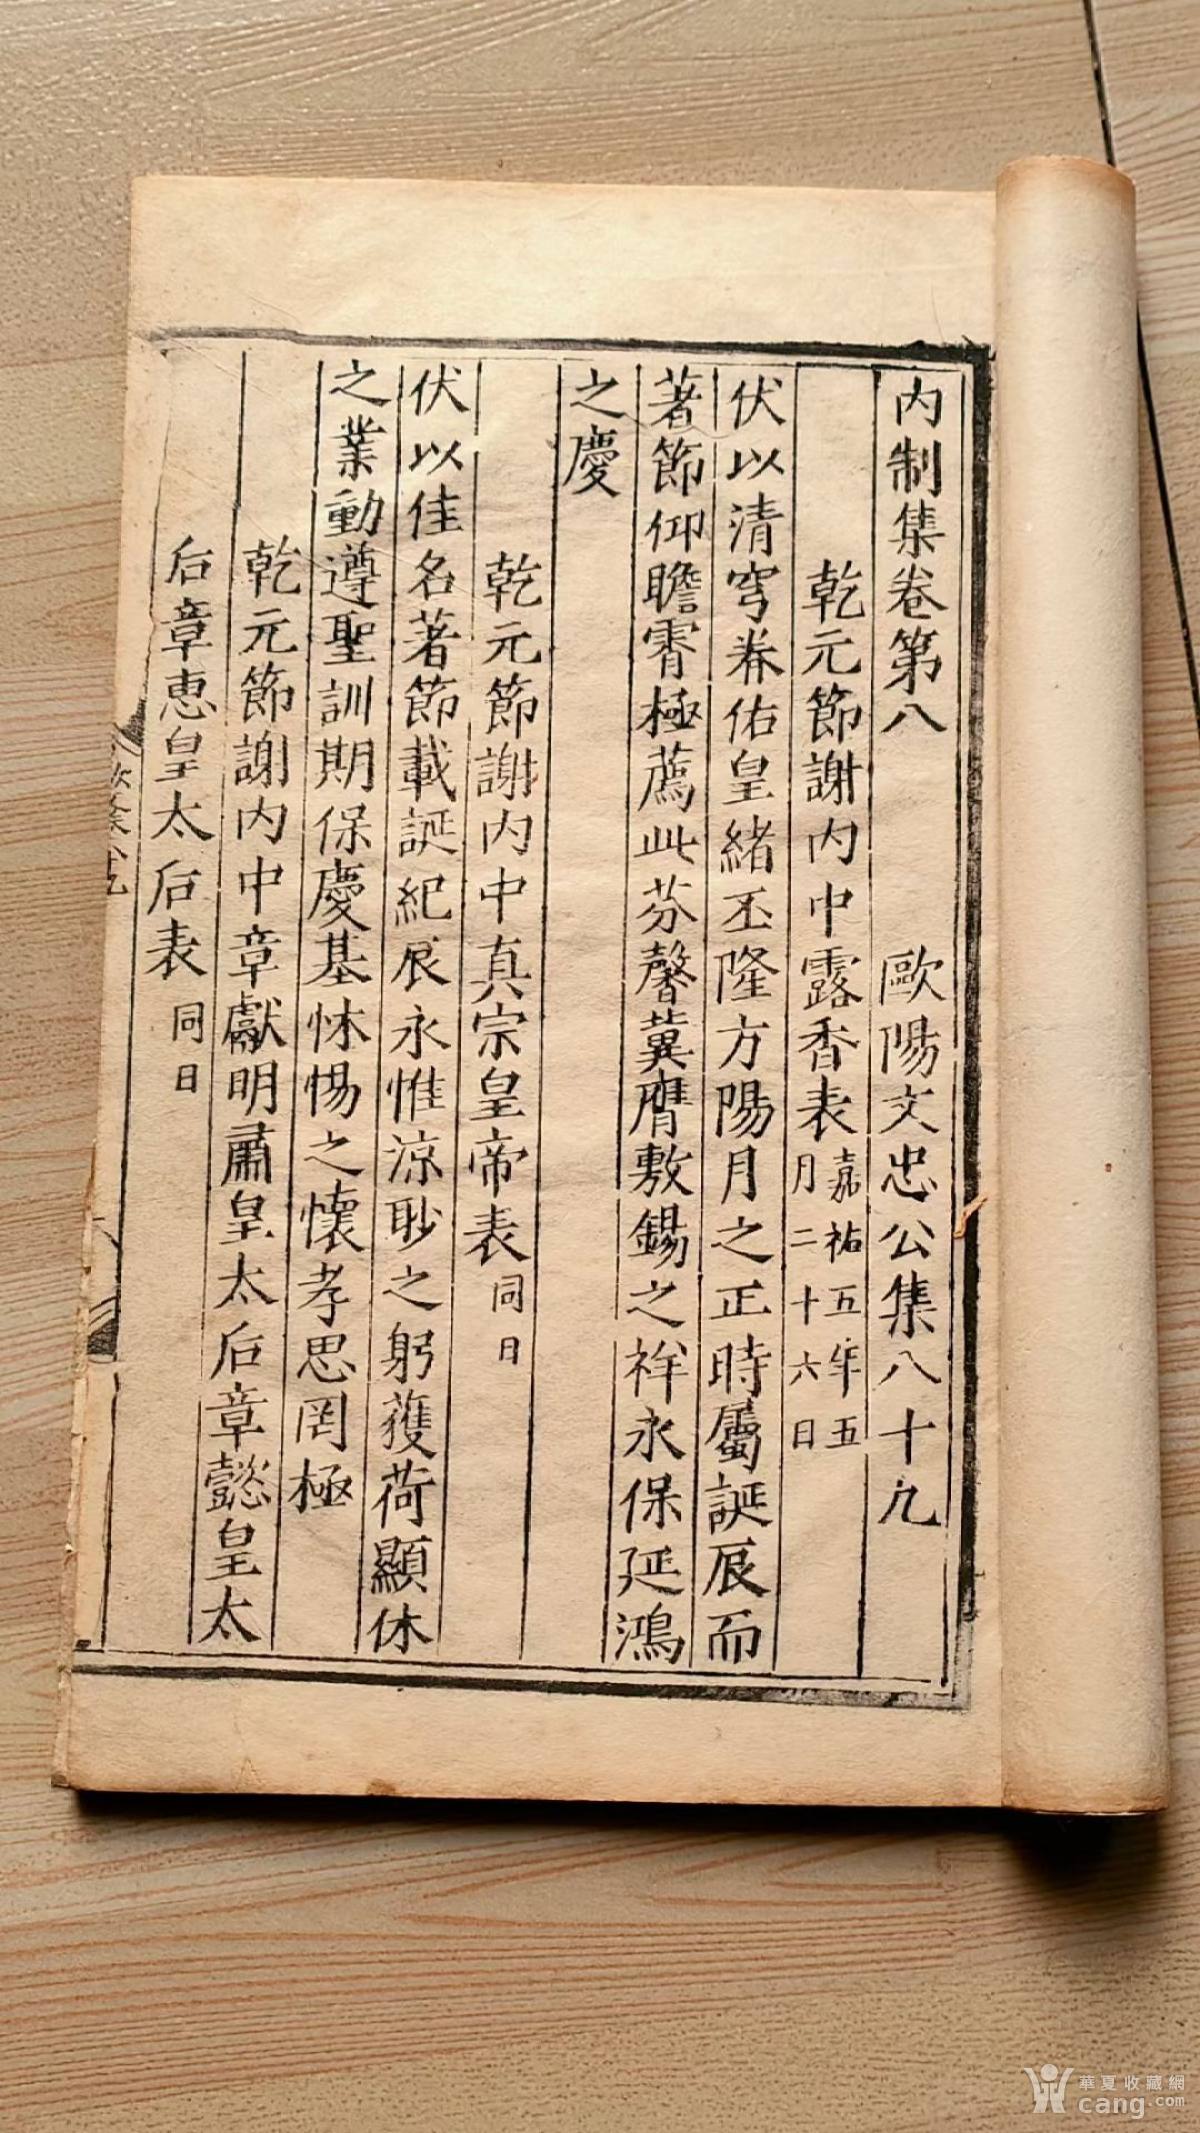 内制集卷第八 歐陽文忠公集八十九
乾元節謝内中露香表嘉祐五年五月二十六日
伏以清穹眷佑皇緒丕隆方陽月之正時屬誕辰而
著節仰瞻霄極薦此芬馨冀膺敷錫之祥永保延鴻
之慶
乾元節謝内中真宗皇帝表同日
伏以佳名著節載誕紀辰永惟涼眇之躬獲荷顯休
之業動遵聖訓期保慶基怵惕之懷孝思罔極
乾元節謝内中章獻明肅皇太后章懿皇太
后章惠皇太后表同日
華夏收藏網
cang.com